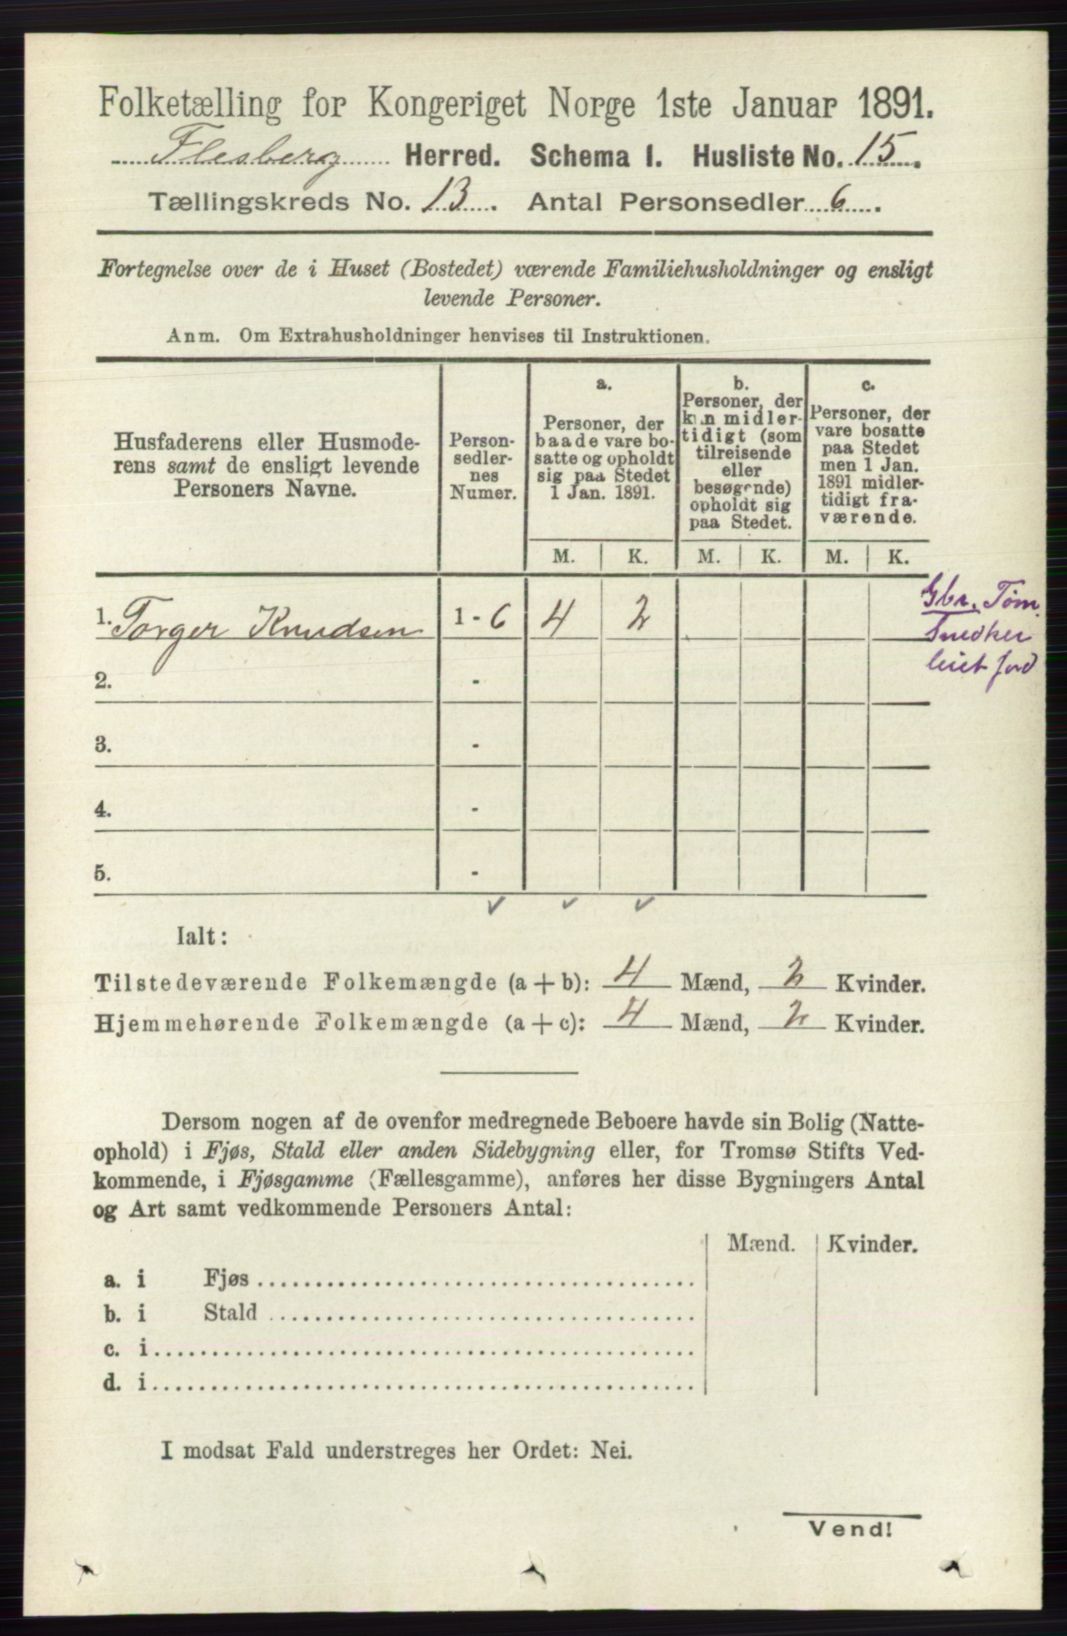 Folketælling for Kongeriget Norge 1ste Januar 1891.
Flesberg Herred. Schema I. Husliste No. 15.
Tællingskreds No. 13. Antal Personsedler 6.
Fortegnelse over de i Huset (Bostedet) værende Familiehusholdninger og ensligt
levende Personer.
Anm. Om Extrahusholdninger henvises til Instruktionen.
Husfaderens eller Husmode-
rens samt de ensligt levende
Personers Navne.
Person-
sedler-
nes
Numer.
a.
Personer, der
baade vare bo-
satte og opholdt
sig paa Stedet
1 Jan. 1891.
b.
Personer, der
kun midler-
tidigt (som
tilreisende
eller
besøgende)
opholdt sig
paa Stedet.
c.
Personer, der
vare bosatte
paa Stedet
men 1 Jan.
1891 midler-
tidigt fra-
værende.
M. K. M. K. M. K.
1. Torger Knudsen 1 - 6 4 2
Gbr. Tøm.
Snedker
leiet jord
2. -
3. -
4. -
5. -
Ialt:
Tilstedeværende Folkemængde (a + b): 4 Mænd, 2 Kvinder.
Hjemmehørende Folkemængde (a + c): 4 Mænd, 2 Kvinder.
Dersom nogen af de ovenfor medregnede Beboere havde sin Bolig (Natte-
ophold) i Fjøs, Stald eller anden Sidebygning eller, for Tromsø Stifts Ved-
kommende, i Fjøsgamme (Fællesgamme), anføres her disse Bygningers Antal
og Art samt vedkommende Personers Antal:
Mænd. Kvinder.
a. i Fjøs
b. i Stald
c. i
d. i
I modsat Fald understreges her Ordet: Nei.
Vend!